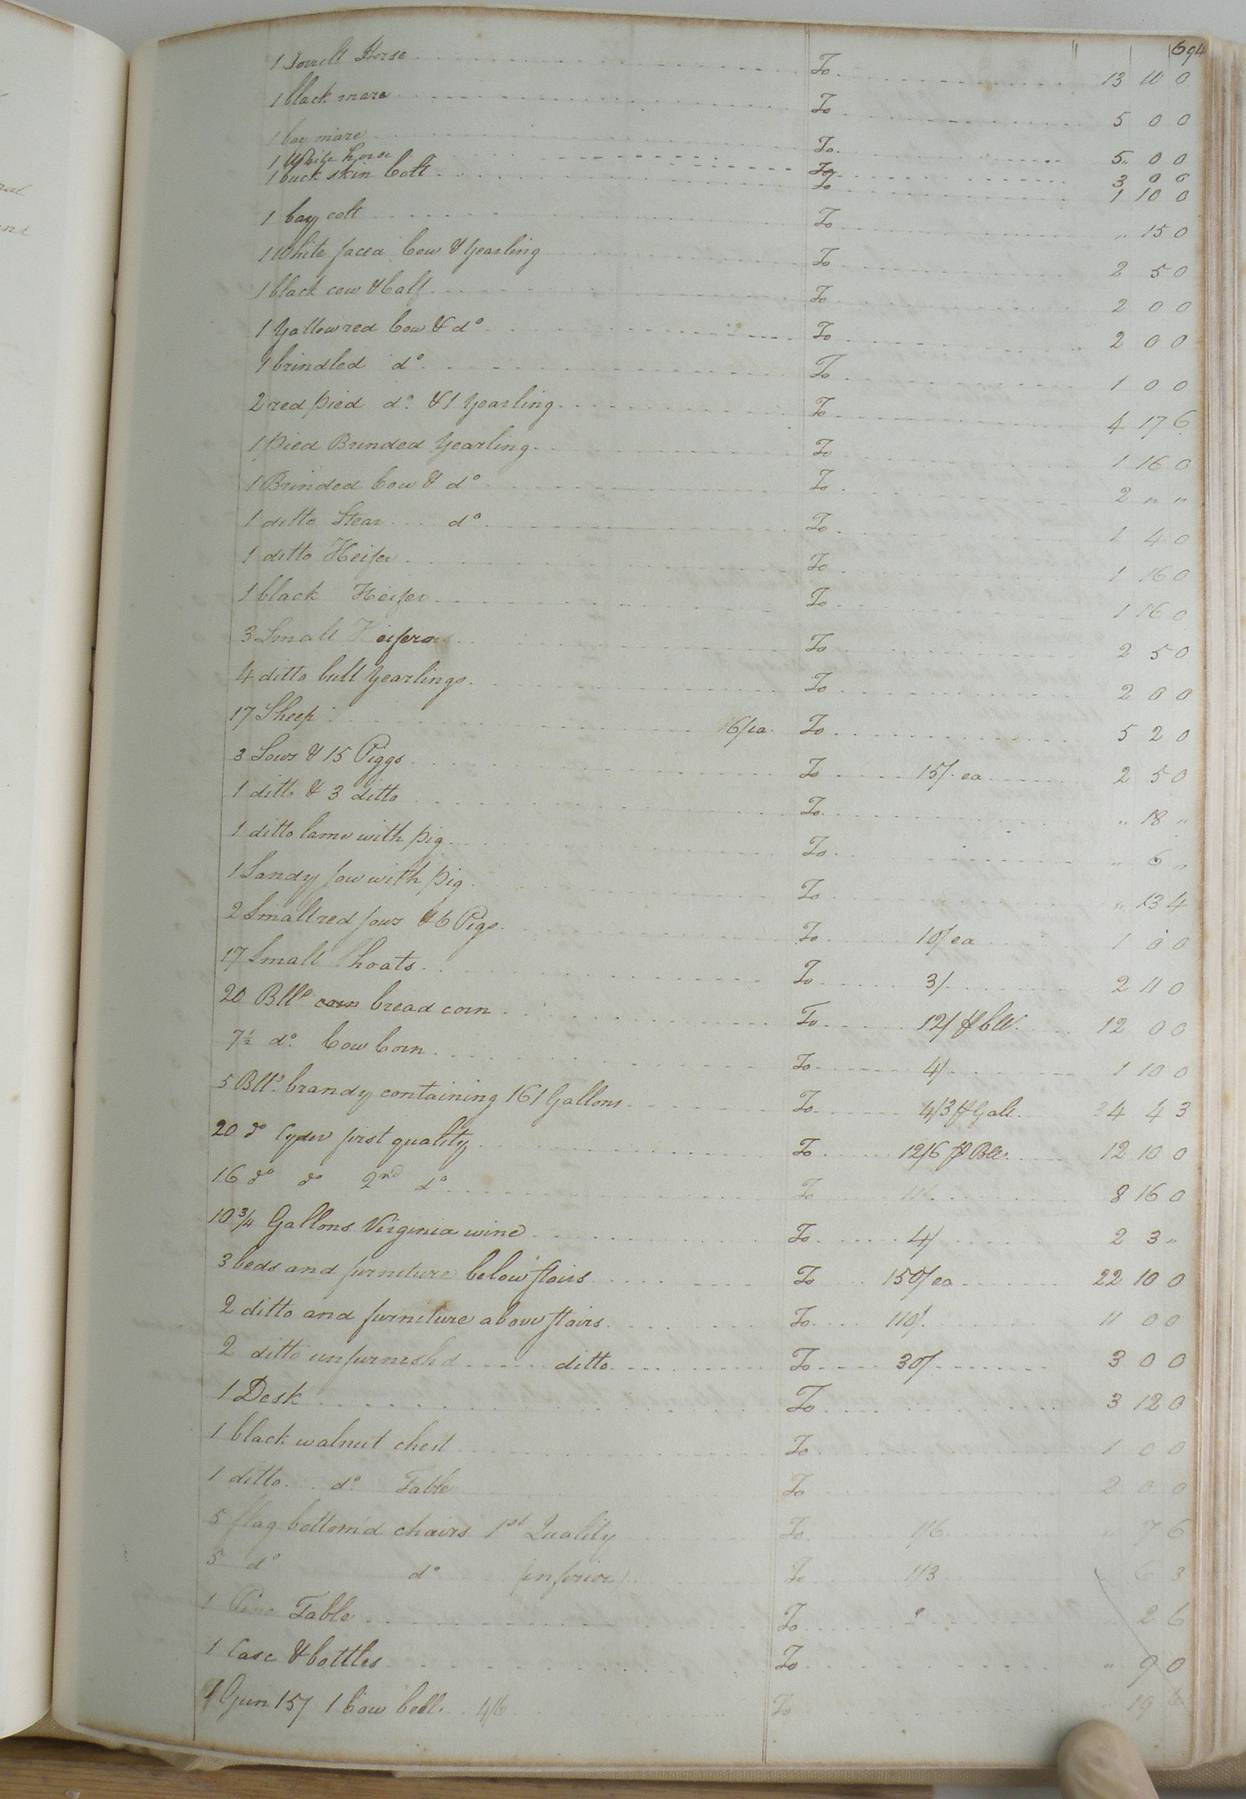 694
1 Sorrell Horse To 13 10 0
1 black mare To 5 0 0
1 bay mare To 5 0 0
1 White horse To 3 0 0
1 buck skin Colt To 1 10 0
1 bay colt To " 15 0
1 White faced Cow & Yearling To 2 5 0
1 black cow & Calf To 2 0 0
1 Yallow red Cow & do To 2 0 0
1 brindled do To 1 0 0
2 red pied do. & 1 Yearling To 4 17 6
1 pied Brinded Yearling To 1 16 0
1 Brinded Cow & do To 2 " "
1 ditto Stear do To 1 4 0
1 ditto Heifer To 1 16 0
1 black Heifer To 1 16 0
3 Small Heiferous To 2 5 0
4 ditto bull Yearlings To 2 0 0
17 Sheep 6/ea To 5 2 0
3 Sows & 15 Piggs To 15/ ea 2 5 0
1 ditto & 3 ditto To " 18 "
1 ditto lame with pig To " 6 "
1 Sandy sow with pig To " 13 4
2 Small red sows & 6 Pigs To 10/ea 1 0 0
17 Small Shoats To 3/ 2 11 0
20 Blls corn bread corn To 12/ ⅌ bll. 12 0 0
7½ do. Cow Corn To 4/ 1 10 0
5 Blls. brandy containing 161 Gallons To 4/3 ⅌ Gall. 34 4 3
20 do Cyder first quality To 12/6 ⅌ Bll. 12 10 0
16 do do 2nd do To 11/ 8 16 0
10¾ Gallons Virginia wine To 4/ 2 3 "
3 beds and furniture below stairs To 150/ea 22 10 0
2 ditto and furniture above stairs To 110/ 11 0 0
2 ditto unfurnishd ditto To 30/ 3 0 0
1 Desk To 3 12 0
1 black walnut chest To 1 0 0
1 ditto do Table To 2 0 0
5 flag bottom'd chairs 1st Quality To 1/6 " 7 6
5 do do inferior To 1/3 6 3
1 Pine Table To 2 6
1 Case & bottles To " 9 0
1 Gun 15/ 1 Cow bell 4/6 To 19 6